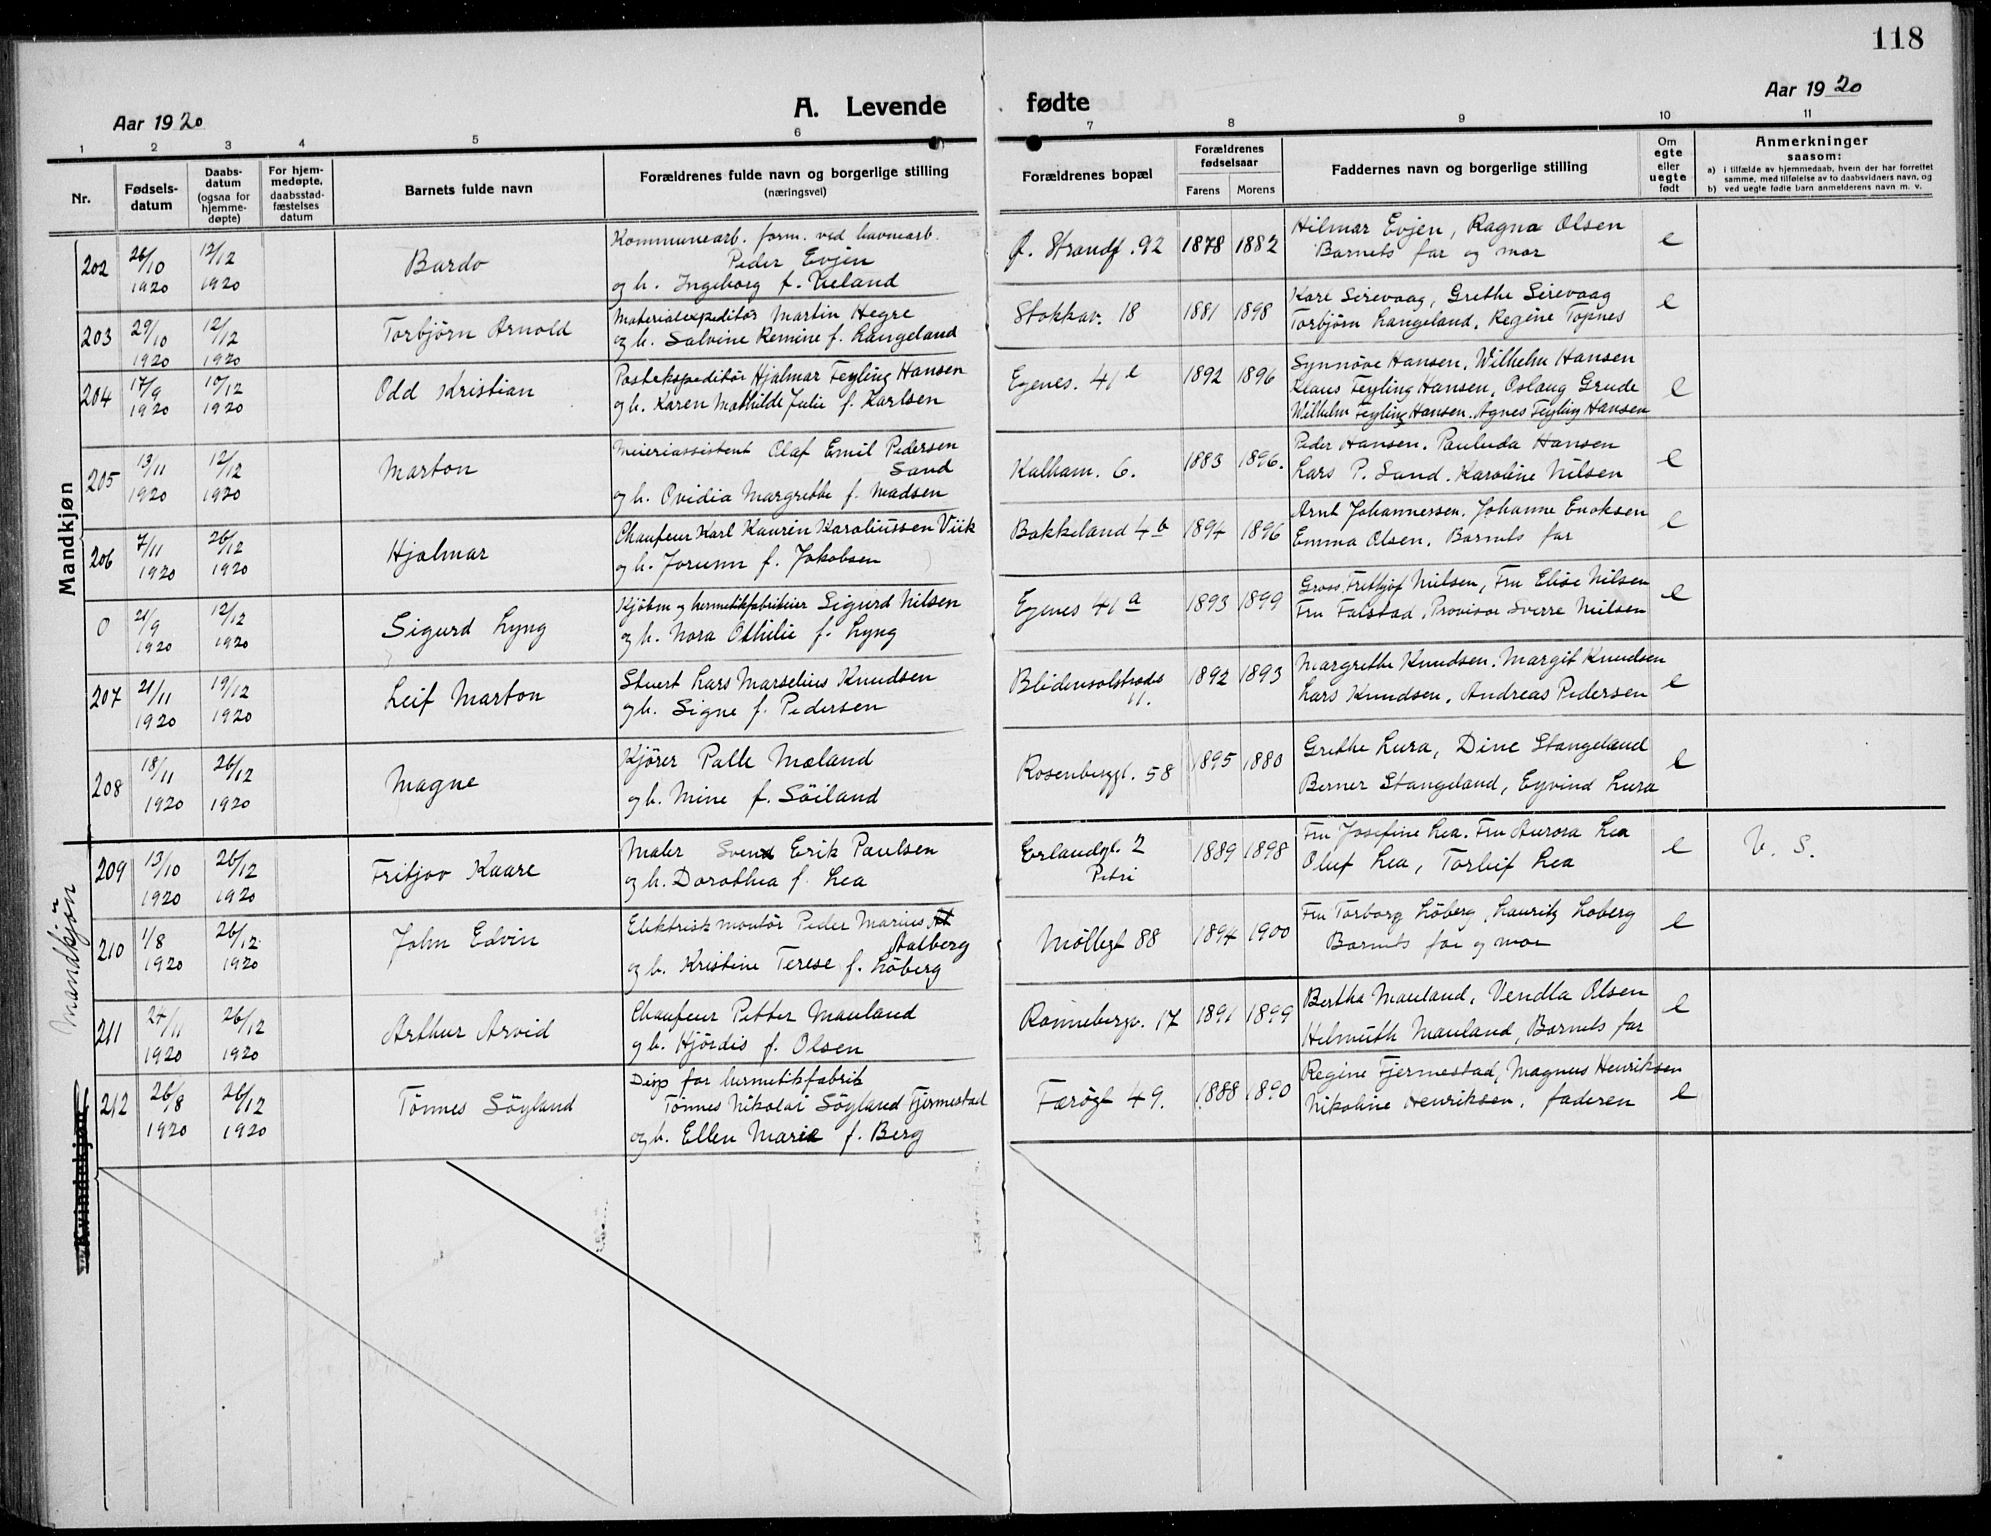 118
Aar 1920
A. Levende fødte
Aar 1920
1 2 3 4 5 6 7 8 9 10 11
Nr.
Fødsels-datum
Daabs-datum (ogsaa for hjemme-døpte)
For hjem-medøpte, daabsstad-fæstelses datum
Barnets fulde navn
Forældrenes fulde navn og borgerlige stilling (næringsvei)
Forældrenes bopæl
Forældrenes fødselsaar
Farens Morens
Faddernes navn og borgerlige stilling
Om egte eller uegte født
Anmerkninger saasom:
a) i tilfælde av hjemmedaab, hvem der har forrettet samme, med tilføielse av to daabsvidners navn, og
b) ved uegte fødte barn anmelderens navn m. v.
Mandkjøn
202 26/10 1920 12/12 1920 Bardo
Kommunearb. form. ved havnearb.
Peder Evjen
og h. Ingeborg f. Vieland
Ø. Strandg. 92 1878 1882
Hilmar Evjen, Ragna Olsen
Barnets far og mor
e
203 29/10 1920 12/12 1920 Torbjørn Arnold
Materialexpeditør Martin Hegre
og h. Salvine Remine f. Langeland
Stokkav. 18 1881 1898
Karl Sirevaag, Grethe Sirevaag
Torbjørn Langeland, Regine Topnes
e
204 17/9 1920 10/12 1920 Odd Kristian
Postekspeditör Hjalmar Feyling Hansen
og h. Karen Mathilde Julie f. Karlsen
Egenes. 41 e 1892 1896
Synnøve Hansen, Wilhelm Hansen
Klaus Feyling Hansen, Oslaug Grude
Wilhelm Feyling Hansen. Agnes Feyling Hansen
e
205 13/11 1920 12/12 1920 Marton
Meieriassistent Olaf Emil Pedersen
Sand
og h. Ovidia Margrethe f. Madsen
Kalham. 6. 1883 1896.
Peder Hansen. Paulida Hansen
Lars P. Sand. Karoline Nilsen
e
206 7/11 1920 26/12 1920 Hjalmar
Chaufeur Karl Kaurin Karoliussen Viik
og h. Jorunn f. Jakobsen
Bakkeland 4 b 1894 1896
Arnt Johannessen. Johanne Enoksen
Emma Olsen. Barnets far
e
0 21/9 1920 12/12 1920 Sigurd Lyng
Kjøbm og hermetikfabrikeier Sigurd Nilsen
og h. Nora Othilie f. Lyng
Egenes 41 a 1893 1899
Gross. Frithjof Nielsen, Fru Elise Nilsen
Fru Falstad, Provisor Sverre Nielsen
e
207 21/11 1920 19/12 1920 Leif Marton
Stuert Lars Marselius Knudsen
og h. Signe f. Pedersen
Blidensolstrade
11. 1892 1893
Margrethe Knudsen. Margit Knudsen
Lars Knudsen. Andreas Pedersen
e
208 18/11 1920 26/12 1920 Magne
Kjører Palle Mæland
og h. Mine f. Söiland
Rosenberggt. 58 1895 1880
Grethe Lura, Dine Stangeland
Berner Stangeland, Eyvind Lura
e
Mandkjøn
Kvindekjøn
209 13/10 1920 26/12 1920 Fritjov Kaare
Maler Svend Erik Paulsen
og h. Dorothea f. Lea
Erlandgt. 2
Petri 1889 1898
Fru Josefine Lea. Fru Aurora Lea
Oluf Lea, Torleif Lea
e V. S.
210 1/8 1920 26/12 1920 John Edvin
Elektrisk montör Peder Marius
Aalberg
og h. Kristine Terese f. Löberg
Møllegt 88 1894 1900
Fru Torborg Löberg, Lauritz Loberg
Barnets far og mor
e
211 27/11 1920 26/12 1920 Arthur Arvid
Chaufeur Petter Mauland
og h. Hjördis f. Olsen
Rønneberg. 17 1891 1899
Bertha Mauland, Vendla Olsen
Helmuth Mauland, Barnets far
e
212 26/8 1920 26/12 1920 Tönnes Söyland
Disp for hermetikfabrik
Tönnes Nikolai Söyland Fjermestad
og h. Ellen Marie f. Berg
Færøgt 49. 1888 1890
Regine Fjermestad, Magnus Henriksen
Nikoline Henriksen, faderen
e